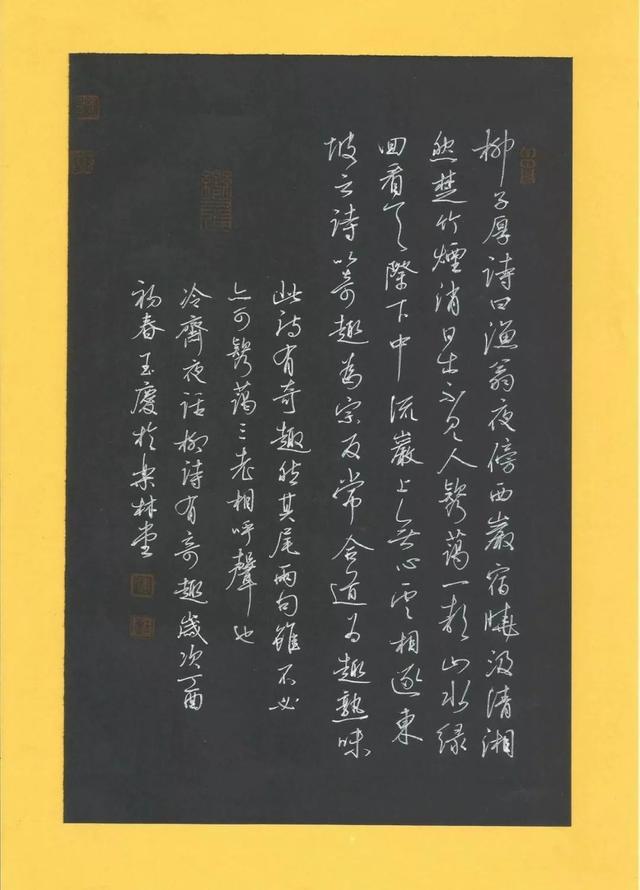 柳子厚詩曰漁翁夜傍西巖宿曉汲清湘
然楚竹煙消日出不見人欸藹一聲山水緑
回看天際下中流巖上無心雲相逐東
坡云詩以奇趣為宗反常合道為趣熟味
此詩有奇趣然其尾兩句雖不必
亦可欸藹三老相呼聲也
冷齊夜話柳詩有奇趣歲次丁酉
初春玉慶於林堂